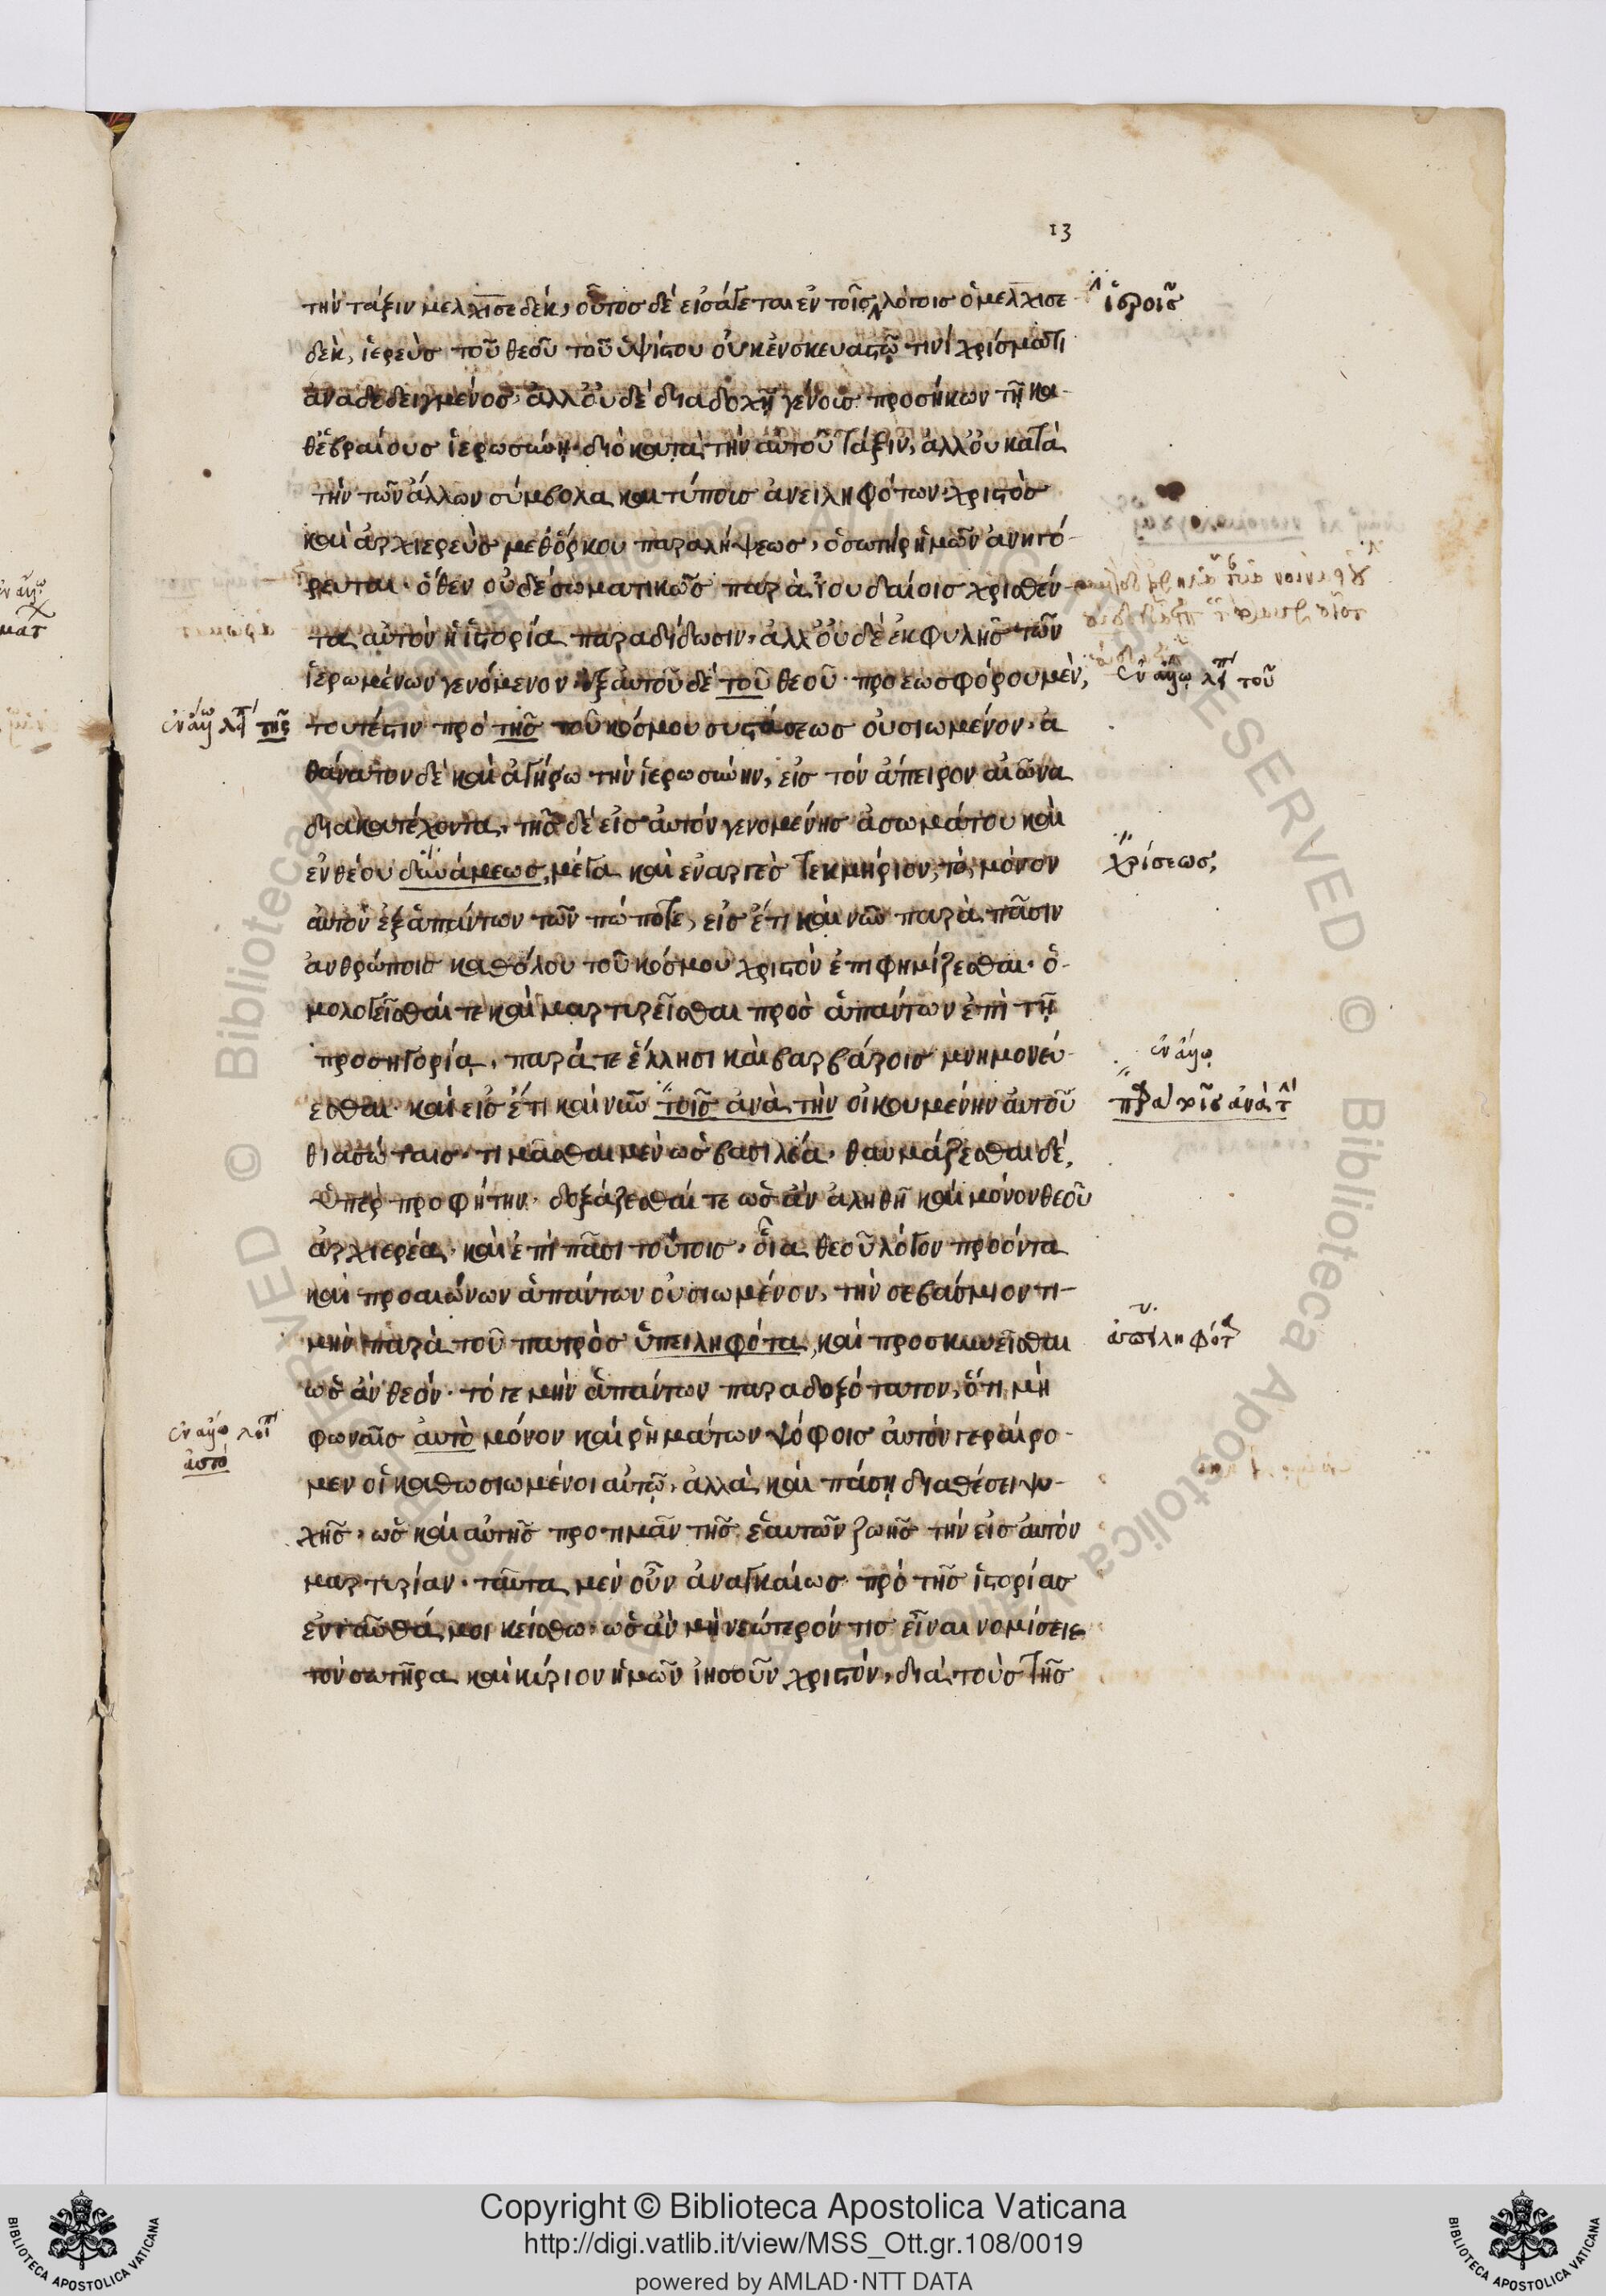 13
τὴν τάξιν μελχισεδέκ, οὗτος δὲ εἰσάγεται ἐν τοῖς λόγοις ὁ μελχισε
ἱεροῖς
δὲκ, ἱερεὺς τοῦ θεοῦ τοῦ ὑψίστου οὐκ ἐν σκευαστῷ τινὶ χρίσματι
ἀναδεδειγμένος, ἀλλ' οὐδὲ διαδοχῇ γένους προσήκων τῇ κα-
θ' ἑβραίους ἱερωσύνῃ· διὸ κατὰ τὴν αὐτοῦ τάξιν, ἀλλ' οὐ κατὰ
τὴν τῶν ἄλλων σύμβολα καὶ τύπους ἀνειληφότων· χριστὸς
καὶ ἀρχιερεὺς μεθ' ὅρκου παραλήψεως, ὁ σωτὴρ ἡμῶν ἀνηγό-
ρευται· ὅθεν οὐδὲ σωματικῶς παρὰ ἰουδαίοις χρισθέν-
τα αὐτὸν ἡ ἱστορία παραδίδωσιν, ἀλλ' οὐδὲ ἐκ φυλῆς τῶν
ἱερωμένων γενόμενον· ἐξ αὐτοῦ δὲ τοῦ θεοῦ προεωσφόρου μὲν,
ἐν ἄλλῳ λείπει τοῦ
ἐν ἄλλῳ λείπει τῆς
τουτέστιν πρὸ τῆς τοῦ κόσμου συστάσεως οὐσιωμένον· ἀ
θάνατον δὲ καὶ ἀγήρω τὴν ἱερωσύνην, εἰς τὸν ἄπειρον αἰῶνα
διακατέχοντα· τῆς δὲ εἰς αὐτὸν γενομένης ἀσωμάτου καὶ
ἐνθέου δυνάμεως, μέγα καὶ ἐναργὲς τεκμήριον, τὸ μόνον
χρίσεως,
αὐτὸν ἐξ ἁπάντων τῶν πώποτε, εἰς ἔτι καὶ νῦν παρὰ πᾶσιν
ἀνθρώποις καθόλου τοῦ κόσμου χριστὸν ἐπιφημίζεσθαι· ὁ-
μολογεῖσθαί τε καὶ μαρτυρεῖσθαι πρὸς ἁπάντων ἐπὶ τῇ
προσηγορίᾳ, παρά τε ἕλλησι καὶ βαρβάροις μνημονεύ-
ἐν ἄλλῳ
εσθαι· καὶ εἰς ἔτι καὶ νῦν τοῖς ἀνὰ τὴν οἰκουμένην αὐτοῦ
παρὰ τοῖς ἀνὰ τὴν
θιασώταις· τιμᾶσθαι μὲν ὡς βασιλέα· θαυμάζεσθαι δὲ,
ὑπὲρ προφήτην· δοξάζεσθαί τε ὡς ἂν ἀληθῆ καὶ μόνον θεοῦ
ἀρχιερέα· καὶ ἐπὶ πᾶσι τούτοις, οἷα θεοῦ λόγον προόντα
καὶ προαιώνων ἁπάντων οὐσιωμένον, τὴν σεβάσμιον τι-
μὴν παρὰ τοῦ πατρὸς ὑπειληφότα, καὶ προσκυνεῖσθαι
ὡς ἂν θεόν· τό γε μὴν ἁπάντων παραδοξότατον, ὅτι μὴ
ἐν ἄλλῳ λείπει
αὐτὸ
φωναῖς αὐτὸ μόνον καὶ ῥημάτων ψόφοις αὐτὸν γεραίρο-
μεν οἱ καθωσιωμένοι αὐτῷ, ἀλλὰ καὶ πάσῃ διαθέσει ψυ-
χῆς· ὡς καὶ αὐτῆς προτιμᾶν τῆς ἑαυτῶν ζωῆς τὴν εἰς αὐτὸν
μαρτυρίαν· ταῦτα μὲν οὖν ἀναγκαίως πρὸ τῆς ἱστορίας
ἐνταῦθά μοι κείσθω· ὡς ἂν μὴ νεώτερόν τις εἶναι νομίσειε
τὸν σωτῆρα καὶ κύριον ἡμῶν ἰησοῦν χριστόν, διὰ τοὺς τῆς
Copyright © Biblioteca Apostolica Vaticana
http://digi.vatlib.it/view/MSS_Ott.gr.108/0019
powered by AMLAD·NTT DATA
BIBLIOTECA APOSTOLICA VATICANA
BIBLIOTECA APOSTOLICA VATICANA